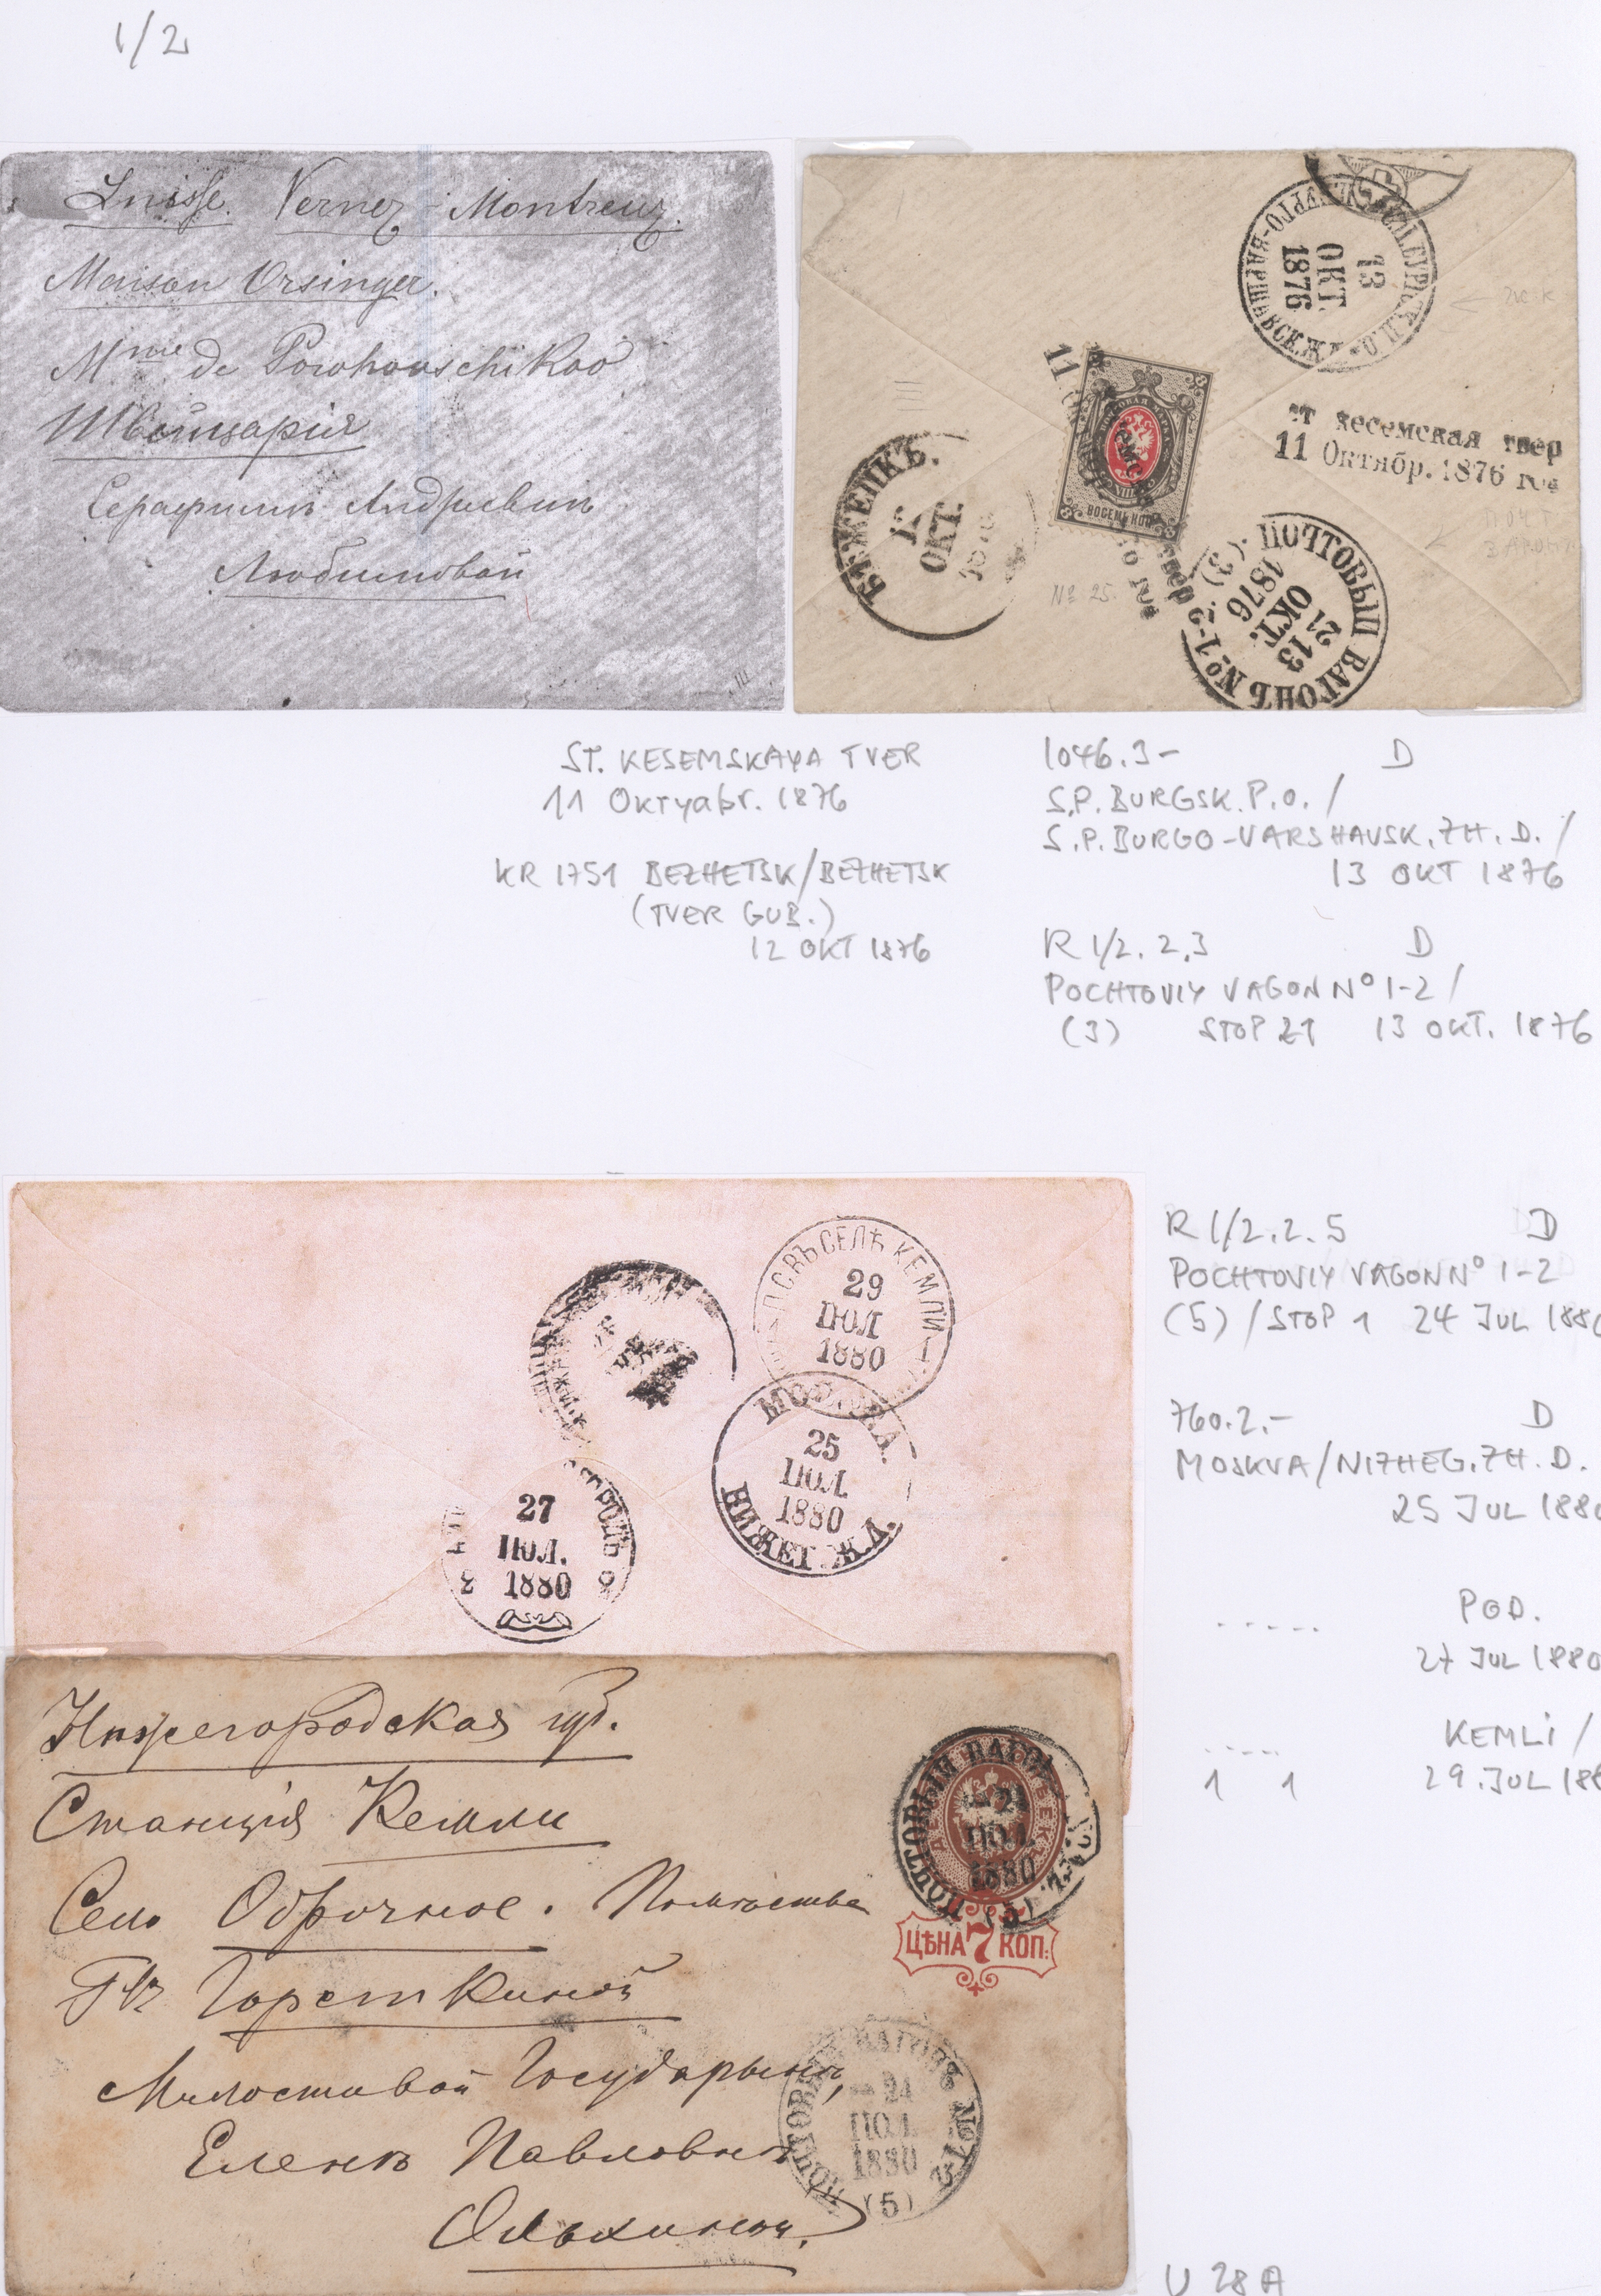 1/2
Suisse. Vernez-Montreux.
Maison Orsinger.
Mme de Porohouschikoo
Швейцарія
Серафимѣ Андреевнѣ
Любимовой
С.П.БУРГО-ВАРШАВСК.Ж.Д.
13
ОКТ.
1876
11
ВОСЕМЬ КОП.
ст кесемская твер
11 Октябр. 1876 год
БѢЖЕЦКЪ.
12
ОКТ.
1876
№ 25.
ПОЧТОВЫЙ ВАГОНЪ № 1-2 (3)
21
13
ОКТ.
1876
ST. KESEMSKAYA TVER
11 Oktyabr. 1876
KR 1751 BEZHETSK/BEZHETSK
(TVER GUB.)
12 OKT 1876
1046.3- D
S.P. BURGSK. P.O. /
S.P. BURGO-VARSHAVSK. ZH. D. /
13 OKT 1876
R 1/2. 2.3 D
POCHTOVIY VAGON N° 1-2 /
(3) STOP 21 13 OKT. 1876
ВЪ СЕЛѢ КЕМЛИ
29
ІЮЛ
1880
МОСКВА.
25
ІЮЛ.
1880
НИЖЕГ. Ж.Д.
27
ІЮЛ.
1880
3 8
R 1/2. 2. 5 D
POCHTOVIY VAGON N° 1-2
(5) / STOP 1 24 JUL 188
760.2.- D
MOSKVA/NIZHEG. ZH. D.
25 JUL 188
..... POD.
27 JUL 1880
.... KEMLI /
1 1 29. JUL 18
Нижегородская губ.
Станція Кемли
Село Оброчное. Помѣстье
Гжи Горсткиной
Милостивой Государынѣ
Еленѣ Павловнѣ
Ольхиной.
ПОЧТОВЫЙ ВАГОНЪ
24
ІЮЛ.
1880
(5)
ЦѢНА 7 КОП.
ПОЧТОВЫЙ ВАГОНЪ № 1-2
24
ІЮЛ.
1880
(5)
U 28 A